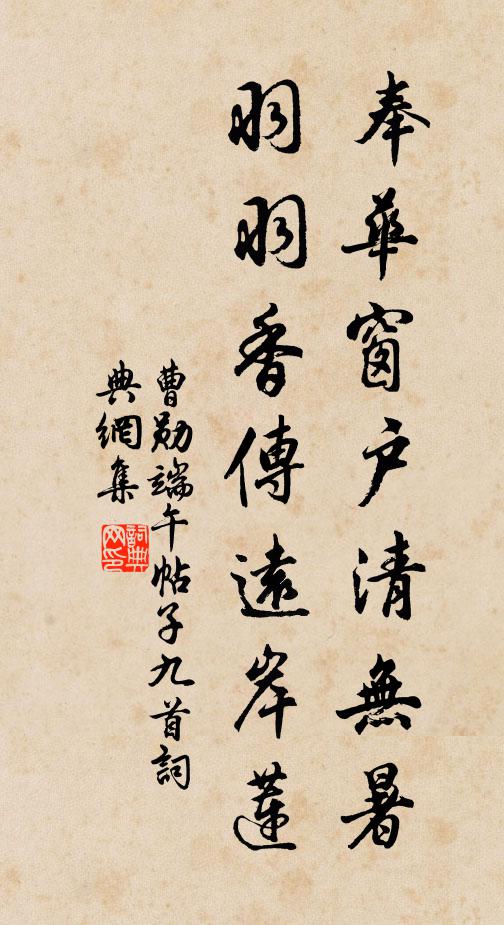 奉華窗户清無暑
羽羽香傳遠岸蓮
曹勋端午帖子九首詞
典網集
詞典
网印